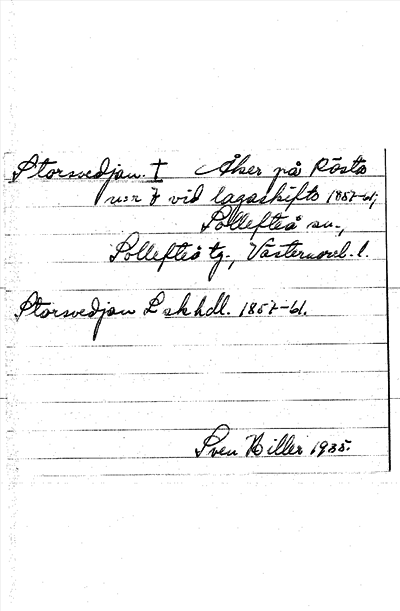 Storsvedjan. † Åker på Rösta
n:r 7 vid lagaskifte 1857-61,
Sollefteå sn.,
Sollefteå tg., Västernorrl. l.
Storsvedjan L skhdl. 1857-61.
Sven Hiller 1935.